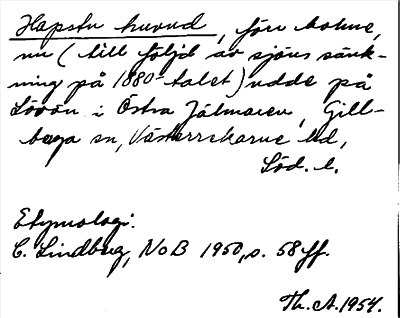 Hapstu huvud, förr holme,
nu (till följd av sjöns sänk-
ning på 1880-talet) udde på
Lövön i Östra Hjälmaren, Gill-
berga sn, Västerrekarne hd,
Söd. l.
Etymologi:
C. Lindberg, NoB 1950, s. 58 ff.
Th. A. 1954.